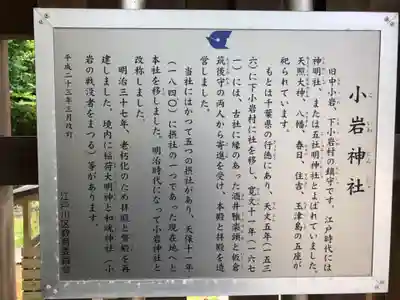 小岩神社
こいわじんじゃ
旧中小岩、下小岩村の鎮守です。江戸時代には
神明社、または五社明神社とよばれていました。
天照大神、八幡、春日、住吉、玉津島の五座が
祀られています。
もとは千葉県の行徳にあり、天文五年（一五三
六）に下小岩村に社を移し、寛文十一年（一六七
一）には、古社に縁のあった酒井雅楽頭と板倉
筑後守の両人から寄進を受け、本殿と拝殿を造
営しました。
当社にはかつて五つの摂社があり、天保十一年
（一八四〇）に摂社の一つであった現在地へと
本社を移しました。明治時代になって小岩神社と
改称しました。
明治三十七年、老朽化のため拝殿と幣殿を再
建しました。境内に稲荷大明神と和光神社（小
岩の戦没者をまつる）等があります。
平成二十三年三月改訂
江戸川区教育委員会